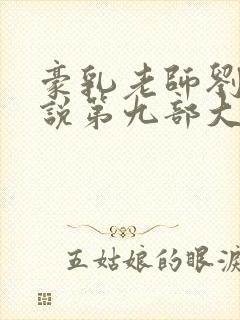 豪乳老師劉
說第九部大
五姑娘的眼淚